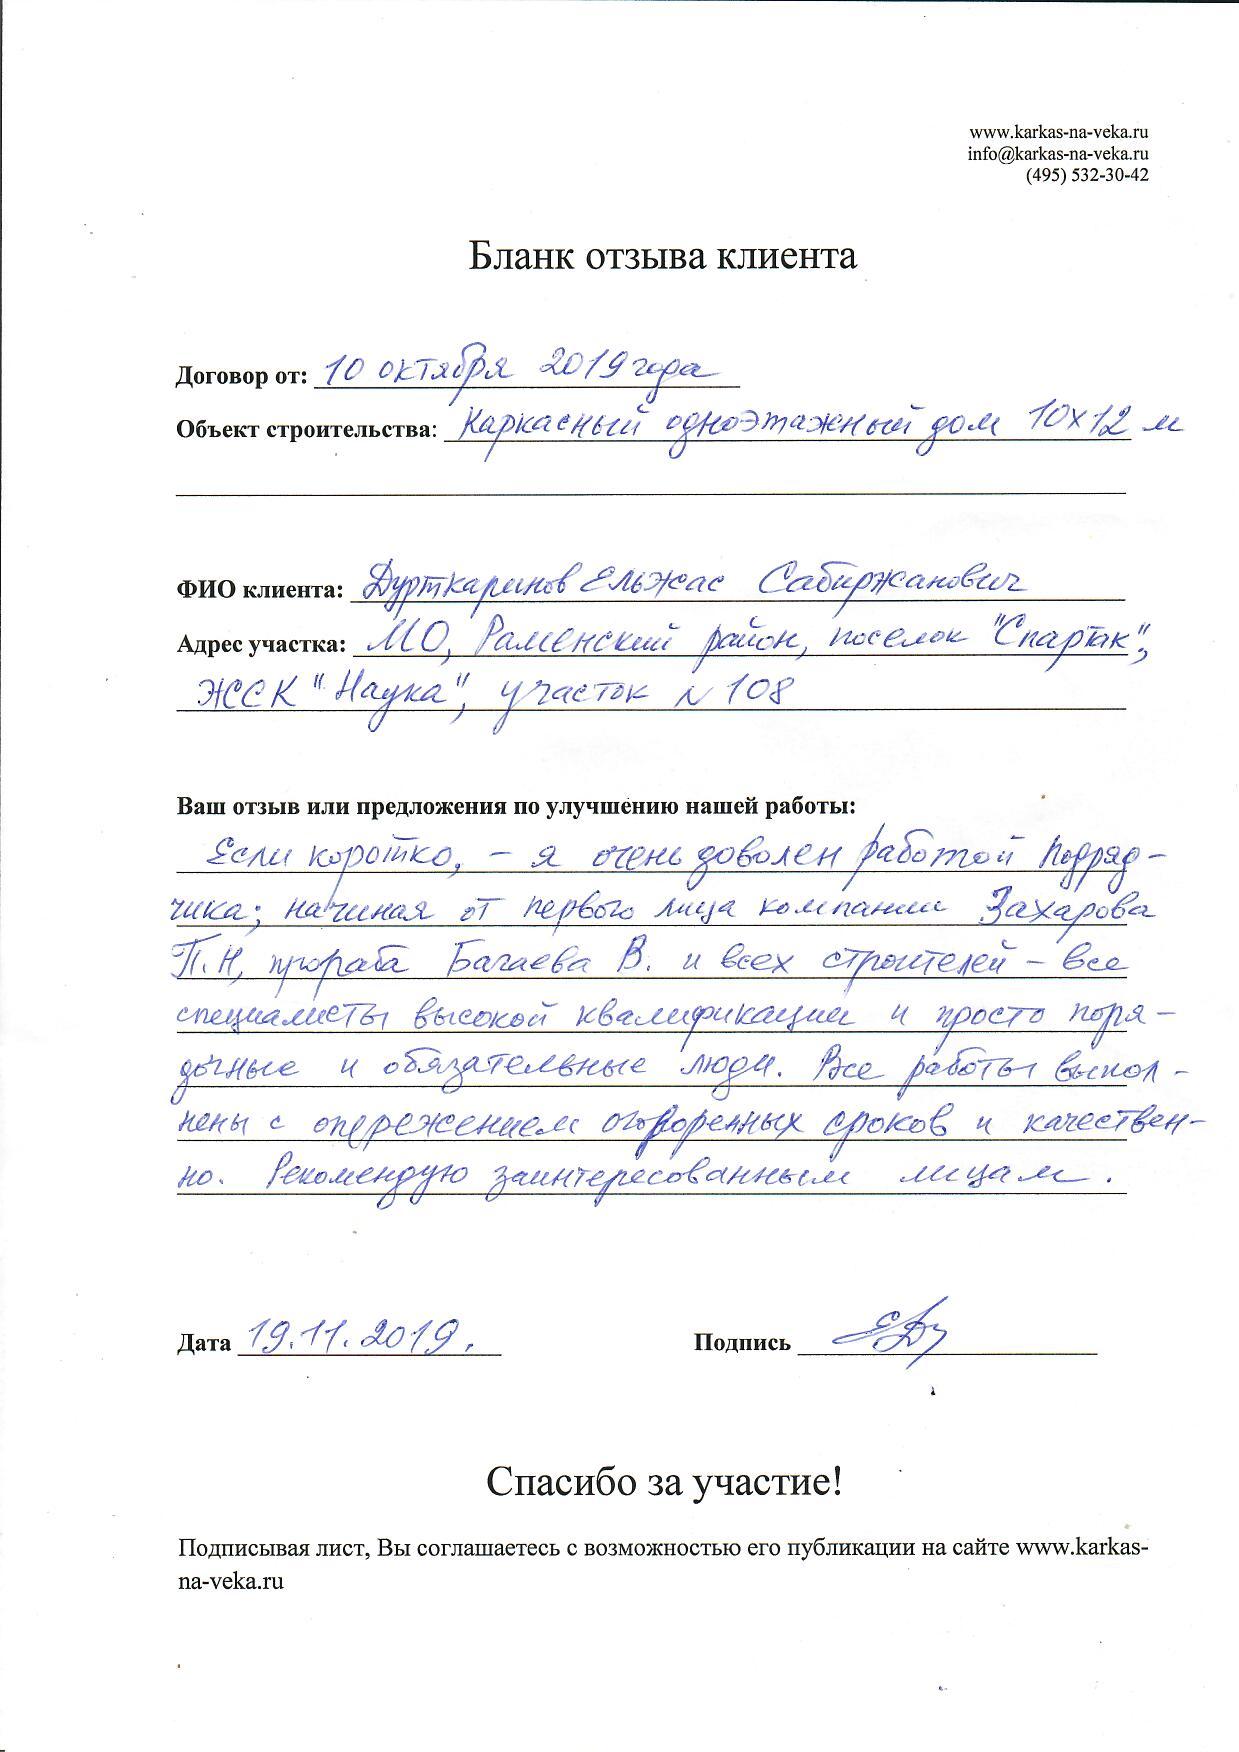 www.karkas-na-veka.ru
info@karkas-na-veka.ru
(495) 532-30-42
Бланк отзыва клиента
Договор от: 10 октября 2019 года
Объект строительства: Каркасный одноэтажный дом 10х12 м
ФИО клиента: Дурткаринов Ельжас Сабиржанович
Адрес участка: МО, Раменский район, поселок "Спартак",
ЖССК "Наука", участок N 108
Ваш отзыв или предложения по улучшению нашей работы:
Если коротко, – я очень доволен работой подряд-
чика; начиная от первого лица компании Захарова
П.Н, прораба Багаева В. и всех строителей – все
специалисты высокой квалификации и просто поря-
дочные и обязательные люди. Все работы выпол-
нены с опережением оговоренных сроков и качествен-
но. Рекомендую заинтересованным лицам.
Дата 19.11.2019. Подпись
Спасибо за участие!
Подписывая лист, Вы соглашаетесь с возможностью его публикации на сайте www.karkas-
na-veka.ru